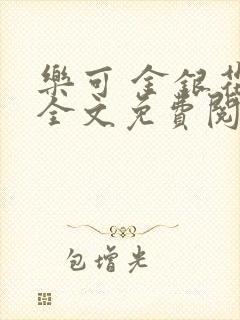 樂可 金銀花
全文免費閱
包增光